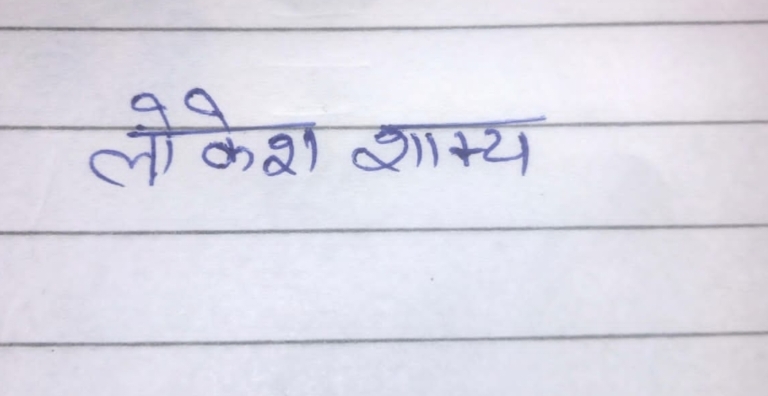 लोकेश शाम्य